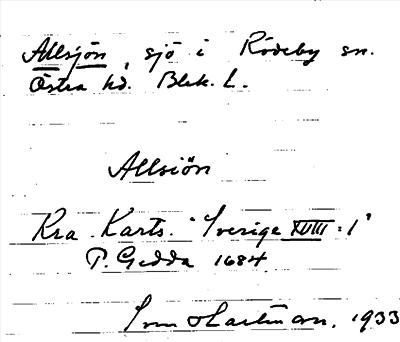 Allsjön, sjö i Rödeby sn.
Östra hd. Blek. L.
Allsiön
Kra. Karts. "Sverige XVIII:1"
P. Gedda 1684
Hartman, 1933